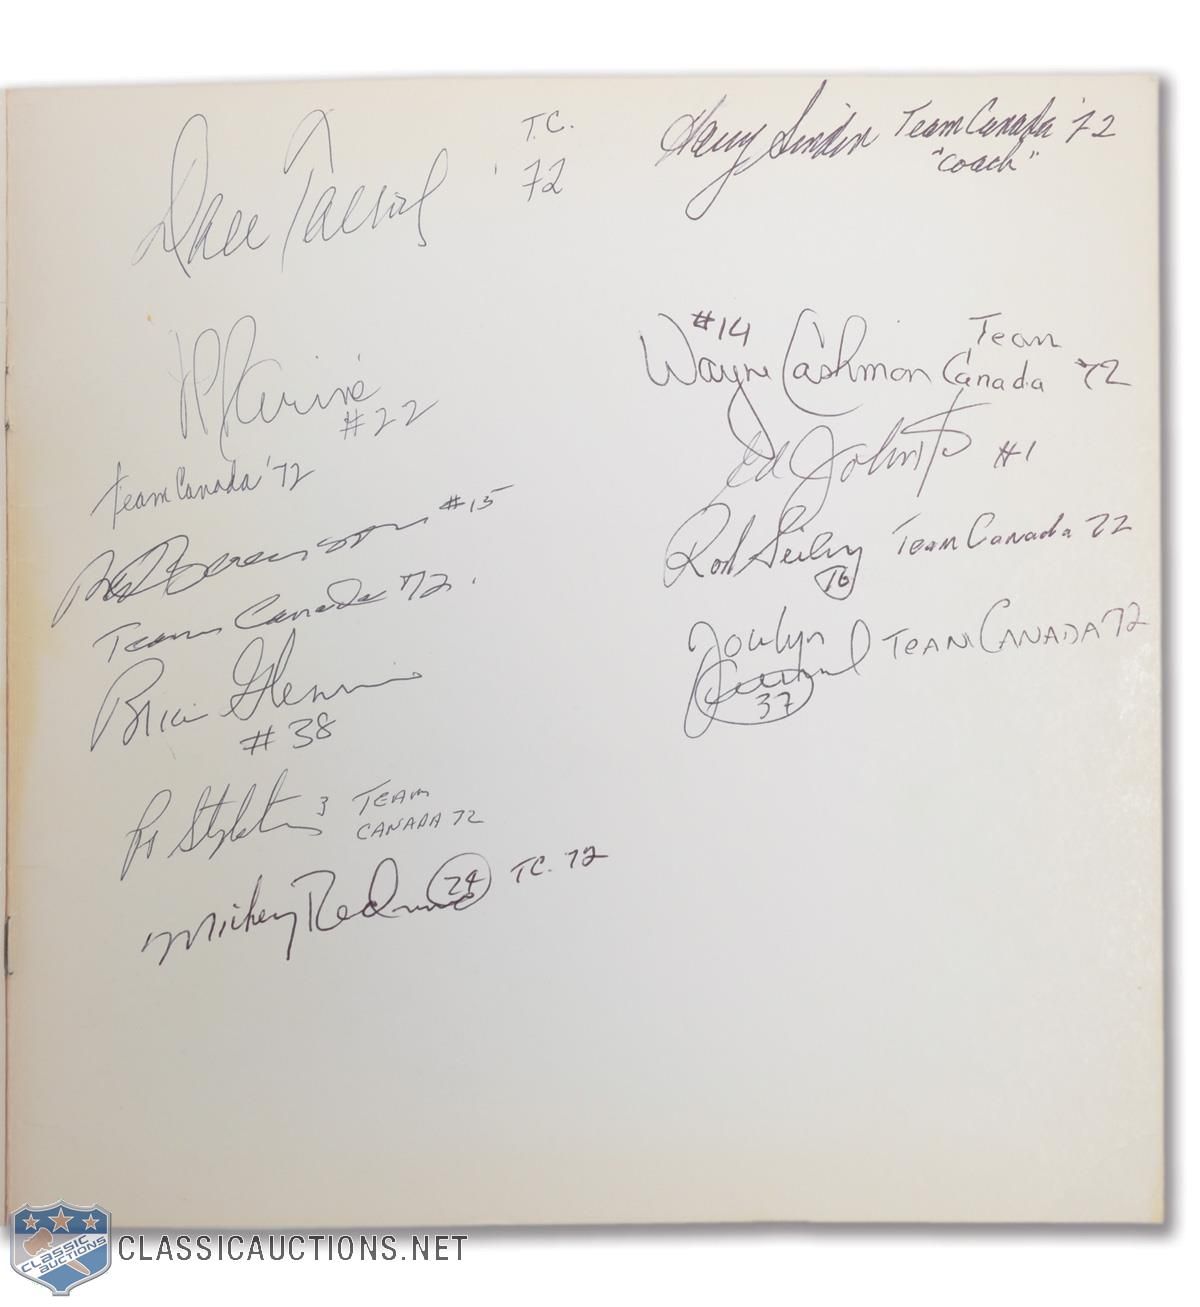 Dale Tallon T.C. '72
JP Parisé
#22
Team Canada '72
Red Berenson #15
Team Canada '72.
Brian Glennie
#38
Pat Stapleton 3 TEAM
CANADA 72
Mickey Redmond 24 TC. 72
Harry Sinden Team Canada '72
"Coach"
#14 Team
Wayne Cashman Canada '72
Ed Johnston #1
Rod Seiling Team Canada 72
16
Jocelyn TEAM CANADA 72
Guevremont
37
CLASSIC
AUCTIONS
CLASSICAUCTIONS.NET